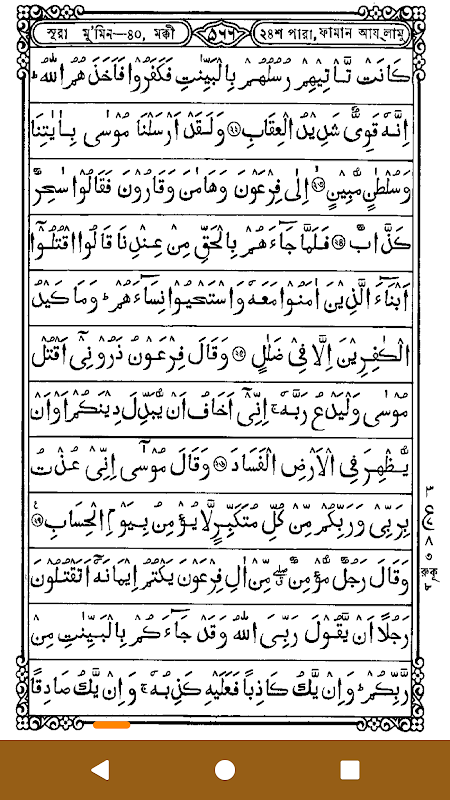 সূরা মু'মিন—৪০, মক্কী
৫৬৬
২৪শ পারা, ফামান আয্‌লামু
كَانَتْ تَّاْتِيْهِمْ رُسُلُهُمْ بِالْبَيِّنٰتِ فَكَفَرُوْا فَاَخَذَهُمُ اللّٰهُ ؕ
اِنَّهٗ قَوِيٌّ شَدِيْدُ الْعِقَابِ ﴿۲۲﴾ وَلَقَدْ اَرْسَلْنَا مُوْسٰى بِاٰيٰتِنَا
وَسُلْطٰنٍ مُّبِيْنٍ ﴿۲۳﴾ اِلٰى فِرْعَوْنَ وَهَامٰنَ وَقَارُوْنَ فَقَالُوْا سٰحِرٌ
كَذَّابٌ ﴿۲۴﴾ فَلَمَّا جَآءَهُمْ بِالْحَقِّ مِنْ عِنْدِنَا قَالُوا اقْتُلُوْٓا
اَبْنَآءَ الَّذِيْنَ اٰمَنُوْا مَعَهٗ وَاسْتَحْيُوْا نِسَآءَهُمْ ؕ وَمَا كَيْدُ
الْكٰفِرِيْنَ اِلَّا فِيْ ضَلٰلٍ ﴿۲۵﴾ وَقَالَ فِرْعَوْنُ ذَرُوْنِيْٓ اَقْتُلْ
مُوْسٰى وَلْيَدْعُ رَبَّهٗ ۚ اِنِّيْٓ اَخَافُ اَنْ يُّبَدِّلَ دِيْنَكُمْ اَوْ اَنْ
يُّظْهِرَ فِي الْاَرْضِ الْفَسَادَ ﴿۲۶﴾ وَقَالَ مُوْسٰٓى اِنِّيْ عُذْتُ
بِرَبِّيْ وَرَبِّكُمْ مِّنْ كُلِّ مُتَكَبِّرٍ لَّا يُؤْمِنُ بِيَوْمِ الْحِسَابِ ﴿۲۷﴾
وَقَالَ رَجُلٌ مُّؤْمِنٌ ۖ مِّنْ اٰلِ فِرْعَوْنَ يَكْتُمُ اِيْمَانَهٗٓ اَتَقْتُلُوْنَ
رَجُلًا اَنْ يَّقُوْلَ رَبِّيَ اللّٰهُ وَقَدْ جَآءَكُمْ بِالْبَيِّنٰتِ مِنْ
رَّبِّكُمْ ؕ وَاِنْ يَّكُ كَاذِبًا فَعَلَيْهِ كَذِبُهٗ ۚ وَاِنْ يَّكُ صَادِقًا
۳
ع
۸
রুকূ
৮